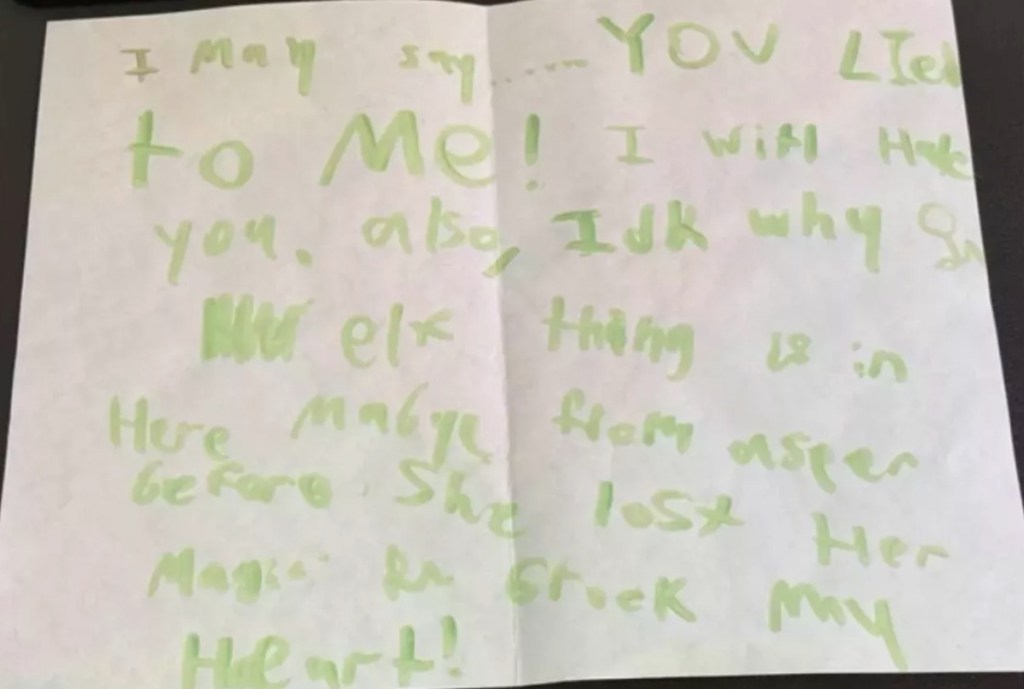 I May say...... YOU LIed
to Me! I will Hate
you. also, Idk why
elx thing is in
Here Mabye from asper
before She lost Her
Magic
May
Heart!